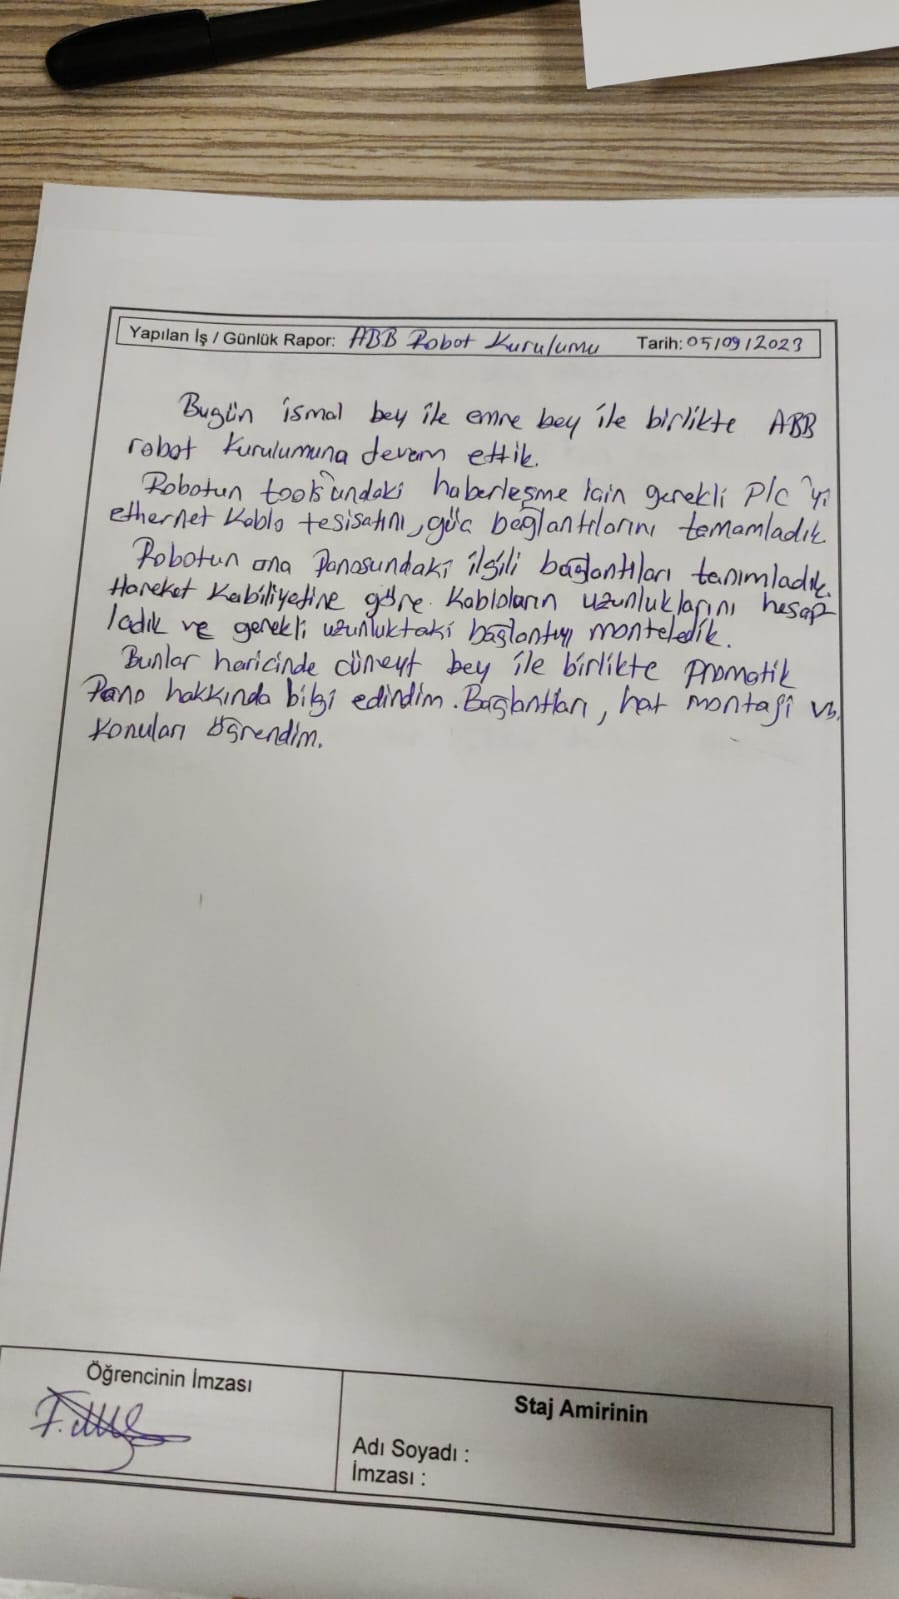 Yapılan İş / Günlük Rapor: ABB Robot Kurulumu Tarih: 05/09/2023
Bugün ismal bey ile emre bey ile birlikte ABB
robot kurulumuna devam ettik.
Robotun tools'undaki haberleşme için gerekli Plc'yi
ethernet kablo tesisatını, güç bağlantılarını tamamladık.
Robotun ana Panosundaki ilgili bağlantıları tanımladık.
Hareket kabiliyetine göre kabloların uzunluklarını hesap
ladık ve gerekli uzunluktaki bağlantıyı monteledik.
Bunlar haricinde cüneyt bey ile birlikte pnomatik
Pano hakkında bilgi edindim. Bağlantıları, hat montajı vb.
konuları öğrendim.
Öğrencinin İmzası
Staj Amirinin
Adı Soyadı :
İmzası :